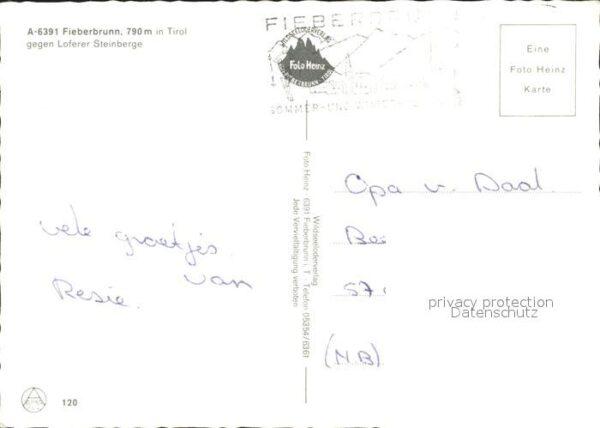 A-6391 Fieberbrunn, 790 m in Tirol
gegen Loferer Steinberge
FIEBERBRUNN
Foto Heinz
SOMMER-UND
Eine
Foto Heinz
Karte
vele groetjes
van
Resie.
Opa v. Daal.
Bee
57
(N.B)
privacy protection
Datenschutz
Foto Heinz · 6391 Fieberbrunn i. T. · Telefon 05354/6361
Wildseeloderverlag
Jede Vervielfältigung verboten
120